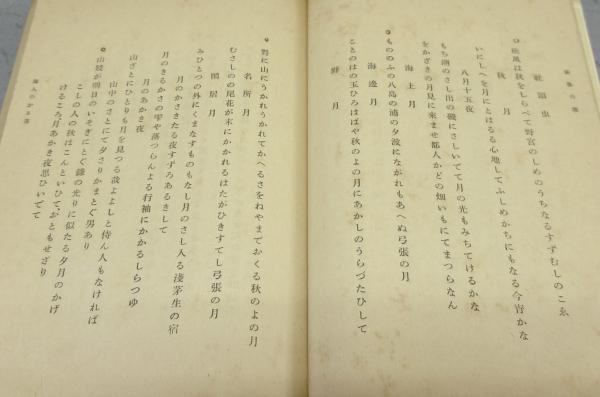 社頭虫
松風は秋をしらべて野宮のしめのうちなるすずむしのこゑ
秋月
いにしへを月にとはるる心地してふしめかちにもなる今宵かな
八月十五夜
もち潮のさし出の磯にさしいてて月の光もみちてけるかな
をかざきの月見に来ませ都人かどの畑いもにてまつらなん
海上月
もののふの八島の浦の夕波にながれもあへぬ弓張の月
海邊月
ことのはの玉ひろはばや秋のよの月にあかしのうらづたひして
野月
野に山にうかれうかれてかへるさをねやまでおくる秋のよの月
名所月
むさしのの尾花が末にかかれるはたがひきすてし弓張の月
閑居月
みひとつの外にくまなすものもなし月のさし入る淺茅生の宿
月のかさきたる夜すずろあるきして
月のきるかさの雫や落つらんよる行袖にかかるしらつゆ
月のあかき夜
山ざとにひとりも月を見つる哉よよしと侍ん人もなければ
山中のさとにて夕さりかまとぐ男あり
山賤が明日のいそぎにとぐ鎌の光りに似たる夕月のかげ
こしの人の秋はこんといひて、おともせざり
けるころ月あかき夜思ひいでて